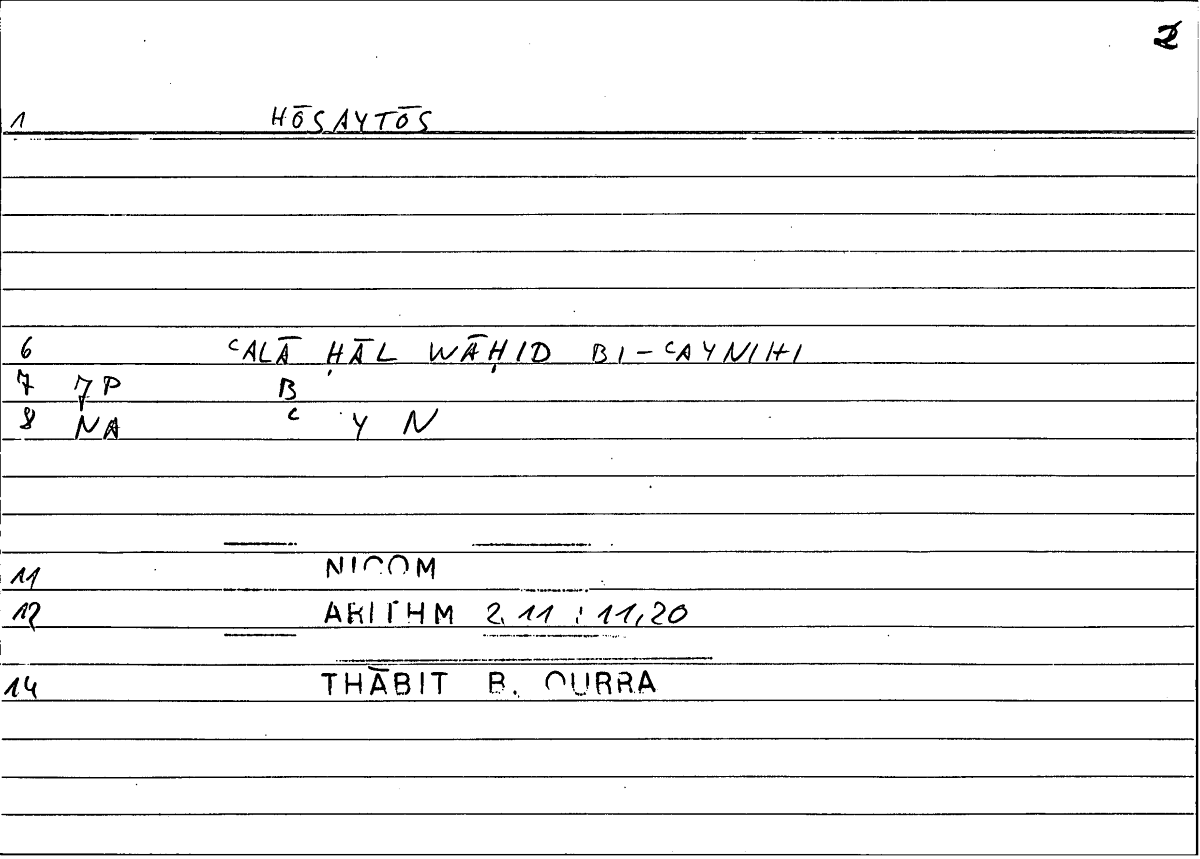 2
1 HŌSAYTŌS
6 ʿALĀ ḤĀL WĀḤID BI-ʿAYNIHI
7 7P B
8 NA ʿ Y N
11 NICOM
12 ARITHM 2.11 : 11,20
14 THĀBIT B. QURRA